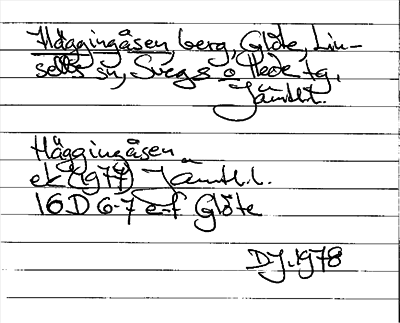 Häggingåsen, berg, Glöte, Lin-
sells sn, Svegs o Hede tg,
Jämtl.l.
Häggingåsen
ek (1977) Jämtl.l.
16D 6-7 e-f Glöte
DJ.1978